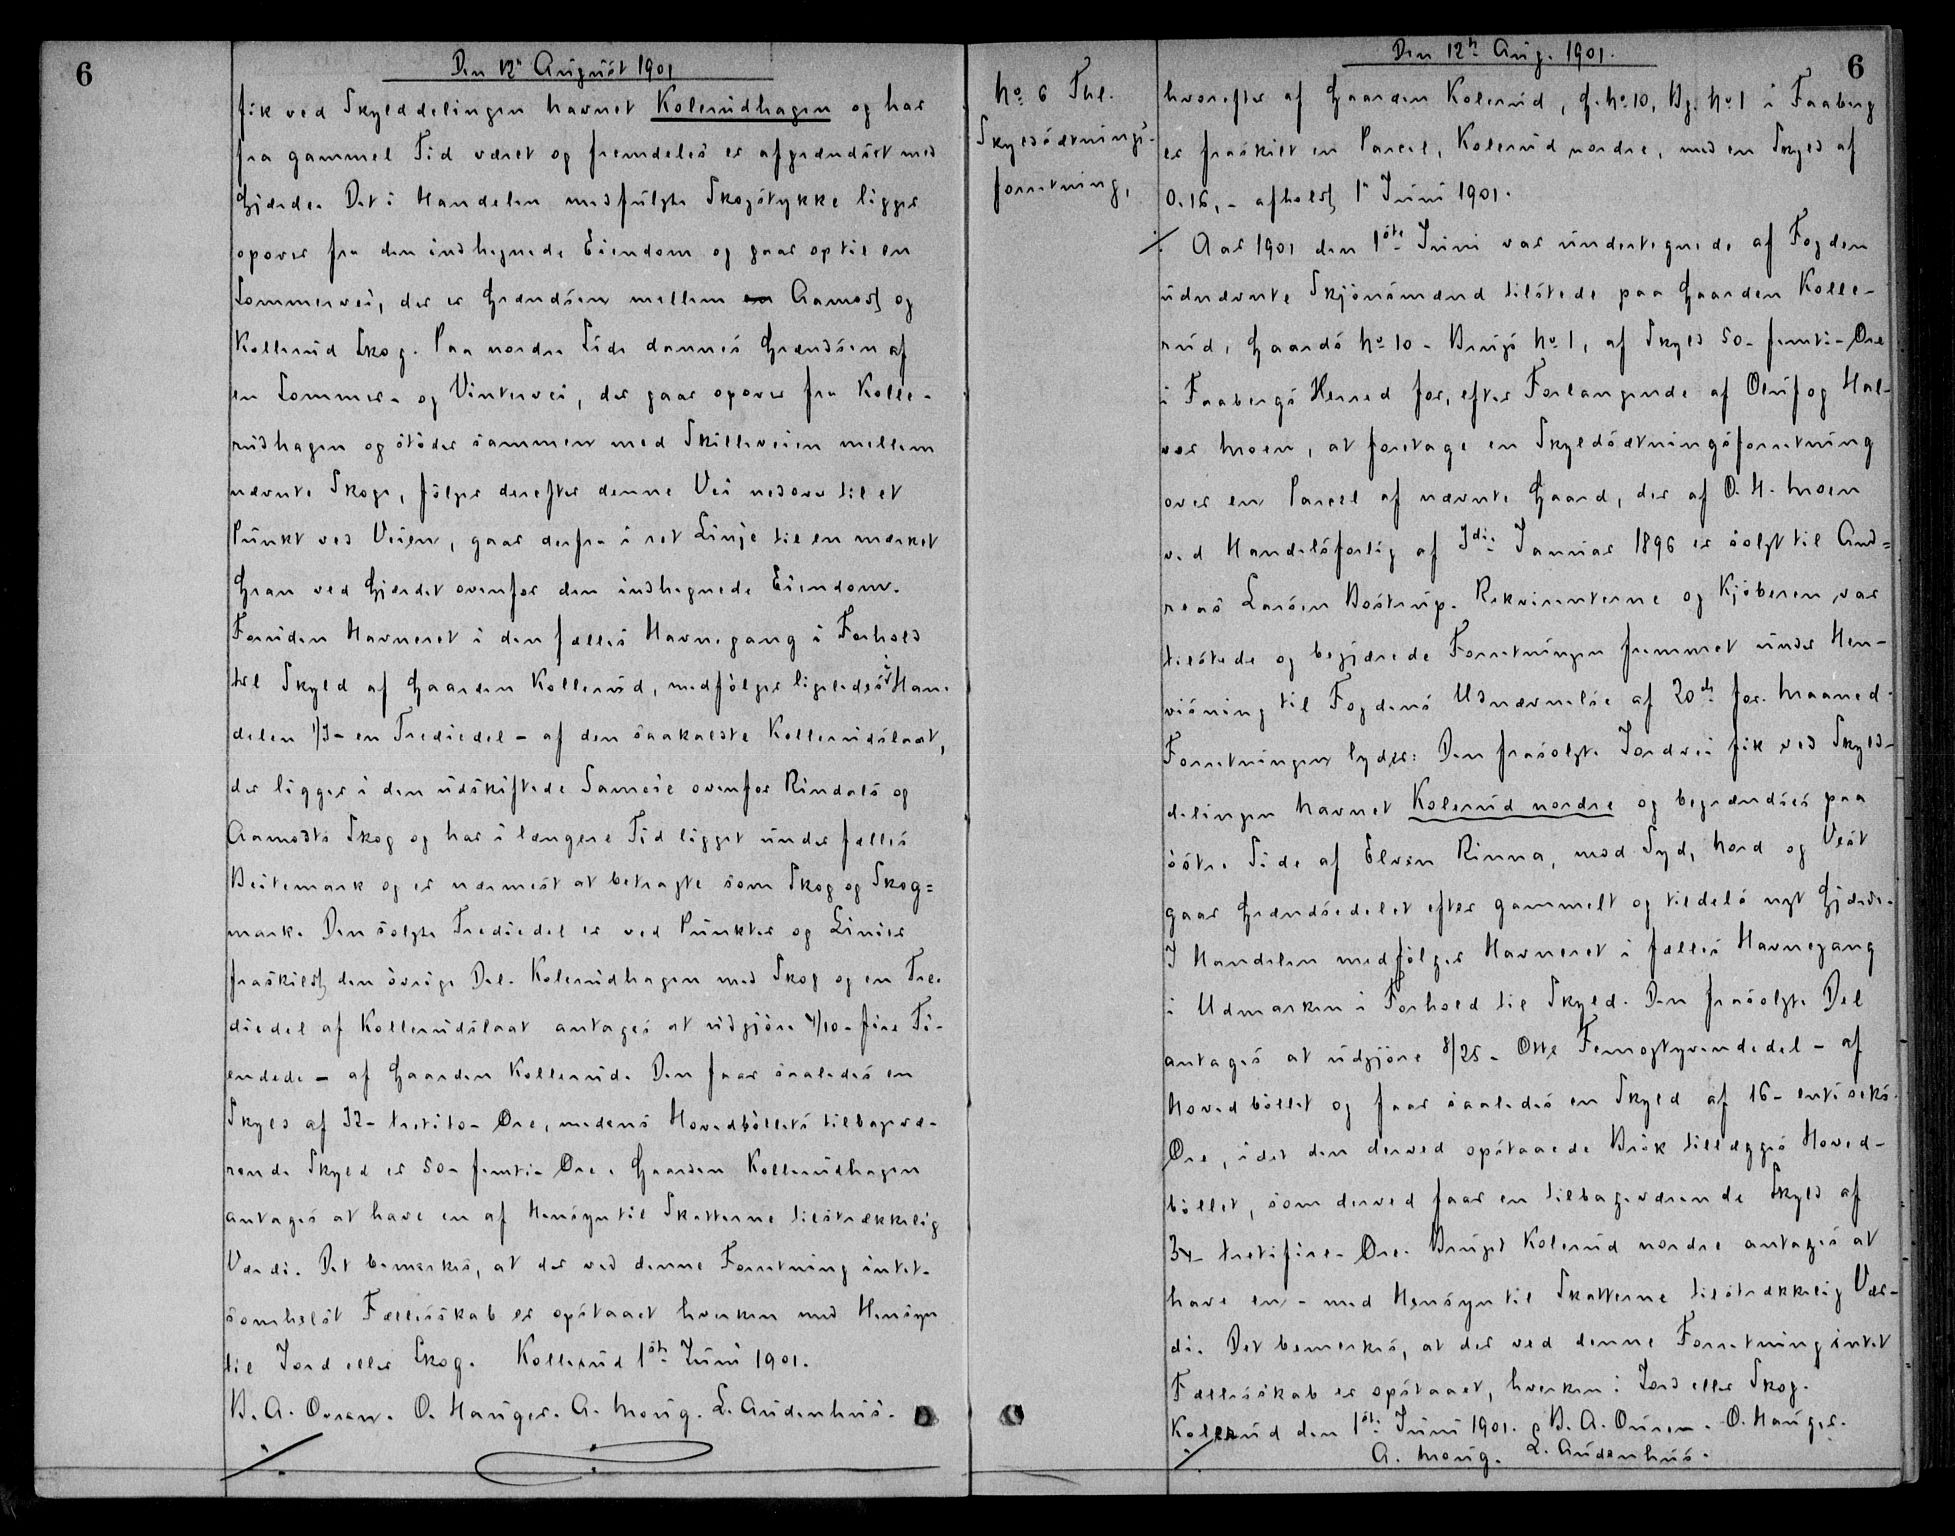 6
Den 12te August 1901
fik ved Skylddelingen Navnet Kolerudhagen og har
fra gammel Tid været og fremdeles er afgrændset med
Gjærde. Det i Handelen medfulgte Skogstykke ligger
opover fra den indhegnede Eiendom og gaar op til en
Sommervei, der er Grændsen mellem en Aamodt og
Kollerud Skog. Paa nordre Side dannes Grændsen af
en Sommer- og Vintervei, der gaar opover fra Kolle-
rudhagen og støder sammen med Skilleveien mellem
nævnte Skoge, følger derefter denne Vei nedover til et
Punkt ved Veien, gaar derfra i ret Linje til en mærket
Gran ved Gjærdet ovenfor den indhegnede Eiendom.
Foruden Havneret i den fælles Havnegang i Forhold
til Skyld af Gaarden Kollerud, medfølger ligeledes i Han-
delen 1/3 - en Trediedel - af den saakaldte Kollerudslaat,
der ligger i den udskiftede Sameie ovenfor Rindals og
Aamodts Skog og har i længere Tid ligget under fælles
Beitemark og er nærmest at betragte som Skog og Skog=
mark. Den solgte Trediedel er ved Punkter og Linier
fraskildt den øvrige Del. Kolerudhagen med Skog og en Tre-
diedel af Kollerudslaat antages at udgjøre 4/10 - fire Ti-
endede - af Gaarden Kollerud. Den faar saaledes en
Skyld af 32 - tretito - Øre, medens Hovedbøllets tilbagevæ-
rende Skyld er 50 - femti - Øre. Gaarden Kollerudhagen
antages at have en af Hensyn til Skatterne tilstrækkelig
Værdi. Det bemærkes, at der ved denne Forretning intet-
somhelst Fællesskab er opstaaet hverken med Hensyn
til Jord eller Skog. Kollerud 1ste Juni 1901.
B. A. Ouren. O. Hauger. A. Moug. L. Audenhus.
Den 12te Aug. 1901.
6
No 6 Thl.
Skyldsætnings-
forretning,
hvorefter af Gaarden Kolerud, G. No 10, Bg. No 1 i Faaberg
er fraskilt en Parcel, Kolerud nordre, med en Skyld af
0.16, - afholdt 1te Juni 1901.
Aar 1901 den 1ste Juni var undertegnede af Fogden
udnævnte Skjønsmænd tilstede paa Gaarden Kolle-
rud, Gaards No 10 - Brugs No 1, af Skyld 50 - femti - Øre
i Faabergs Herred for, efter Forlangende af Oluf og Hal-
vor Moen, at foretage en Skyldsætningsforretning
over en Parcel af nævnte Gaard, der af O. H. Moen
ved Handelsforlig af 3die Januar 1896 er solgt til And=
reas Larsen Bostrup. Rekvirenterne og Kjøberen var
tilstede og begjærede Forretningen fremmet under Hen-
visning til Fogdens Udnævnelse af 20de for. Maaned.
Forretningen lyder: Den frasolgte Jordvei fik ved Skyld-
delingen Navnet Kolerud nordre og begrændses paa
østre Side af Elven Rinna, mod Syd, Nord og Vest
gaar Grændsedelet efter gammelt og tildels nyt Gjærde.
I Handelen medfølger Havneret i fælles Havnegang
i Udmarken i Forhold til Skyld. Den frasolgte Del
antages at udgjøre 8/25 - Otte Femogtyvendedel - af
Hovedbøllet og faar saaledes en Skyld af 16 - enti seks
Øre, idet den derved opstaaede Brøk tillægges Hoved-
bøllet, som derved faar en tilbageværende Skyld af
34 - tretifire - Øre. Bruget Kolerud nordre antages at
have en - med Hensyn til Skatterne tilstrækkelig Vær-
di. Det bemærkes, at der ved denne Forretning intet
Fællesskab er opstaaet, hverken i Jord eller Skog.
Kolerud den 1ste Juni 1901. B. A. Ouren. O. Hauger.
A. Moug. L. Audenhus.